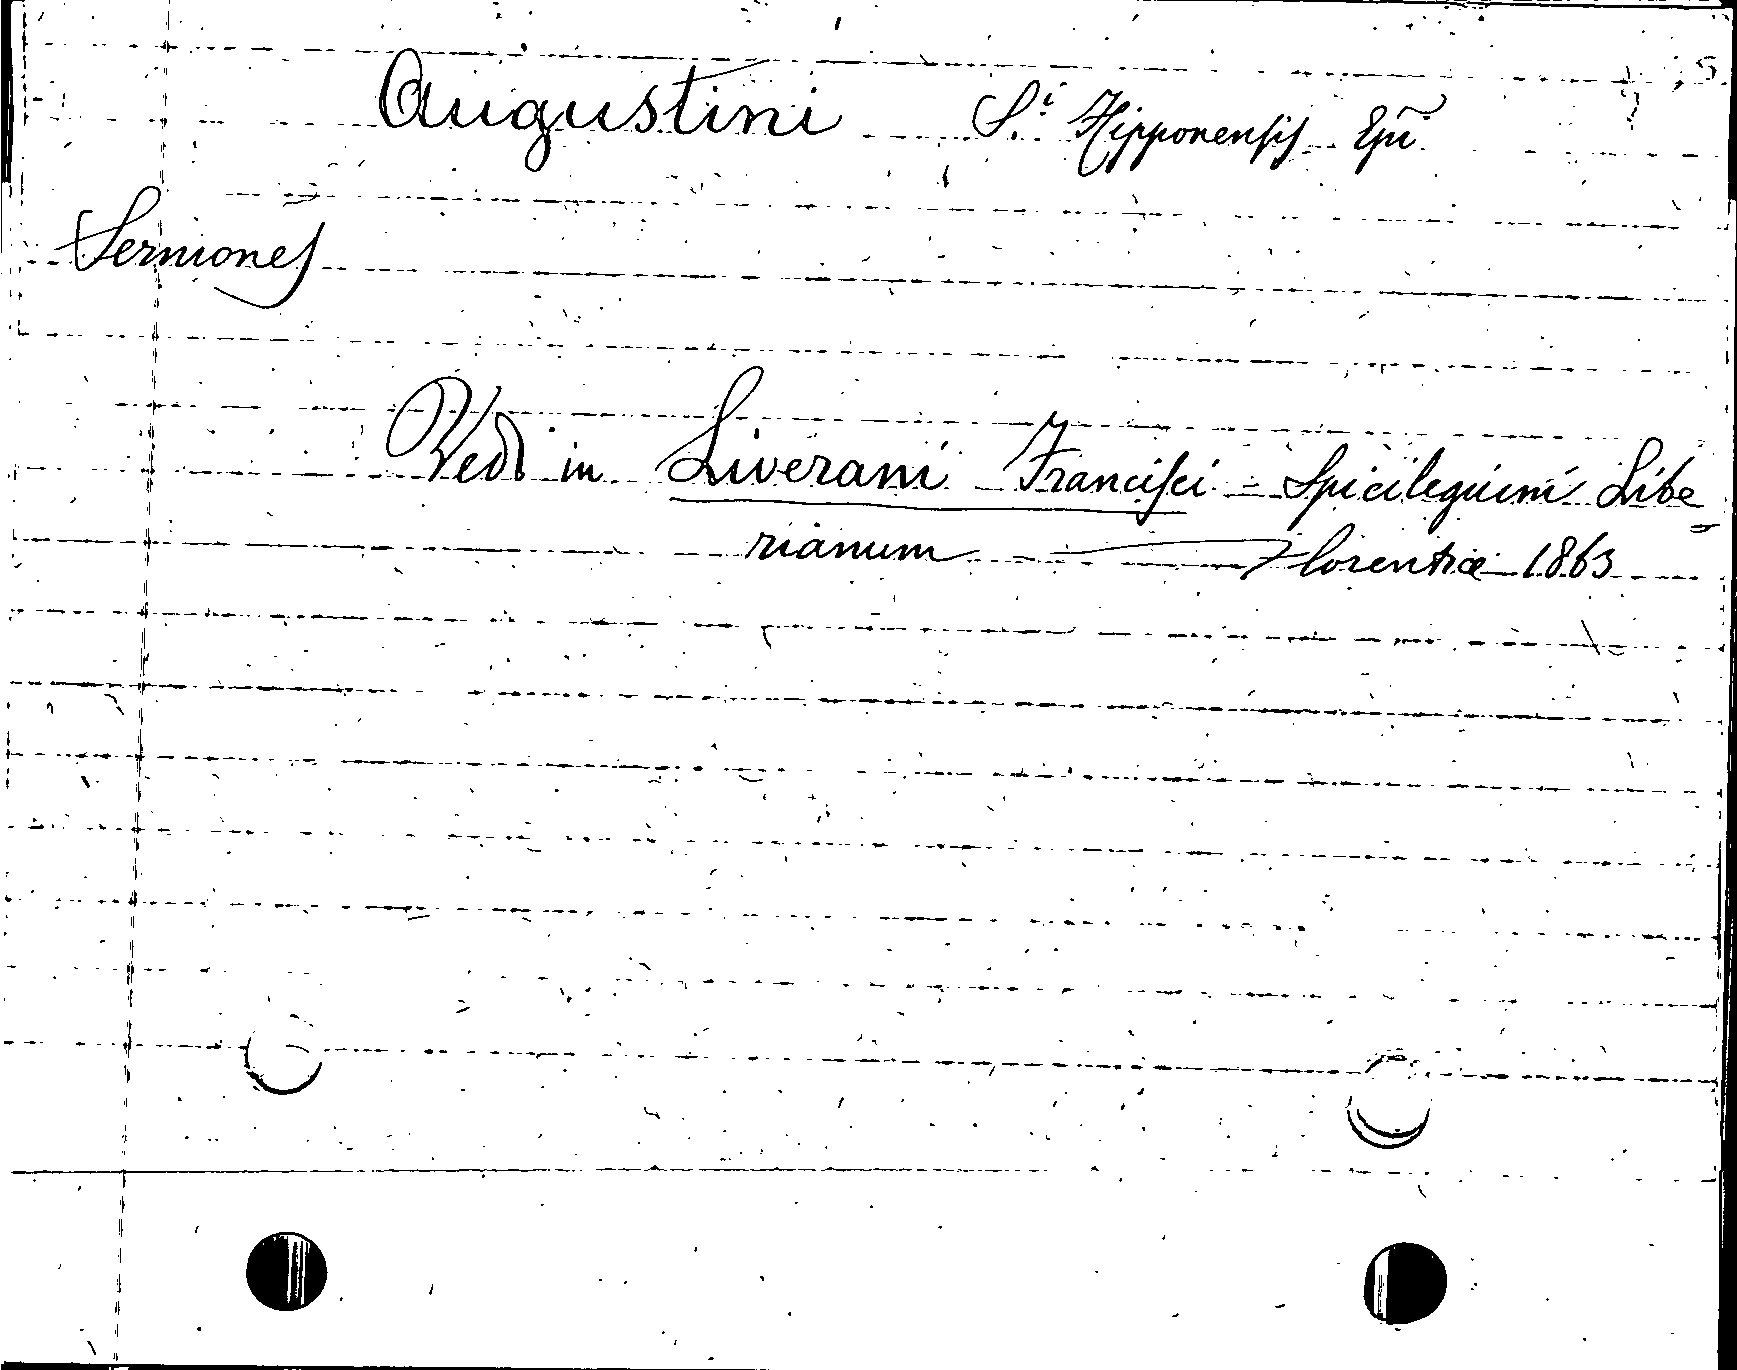 Augustini S.i Hipponensis Epi
Sermones
Vedi in Liverani Francisci - Spicilegium Libe=
rianum Florentiæ 1863